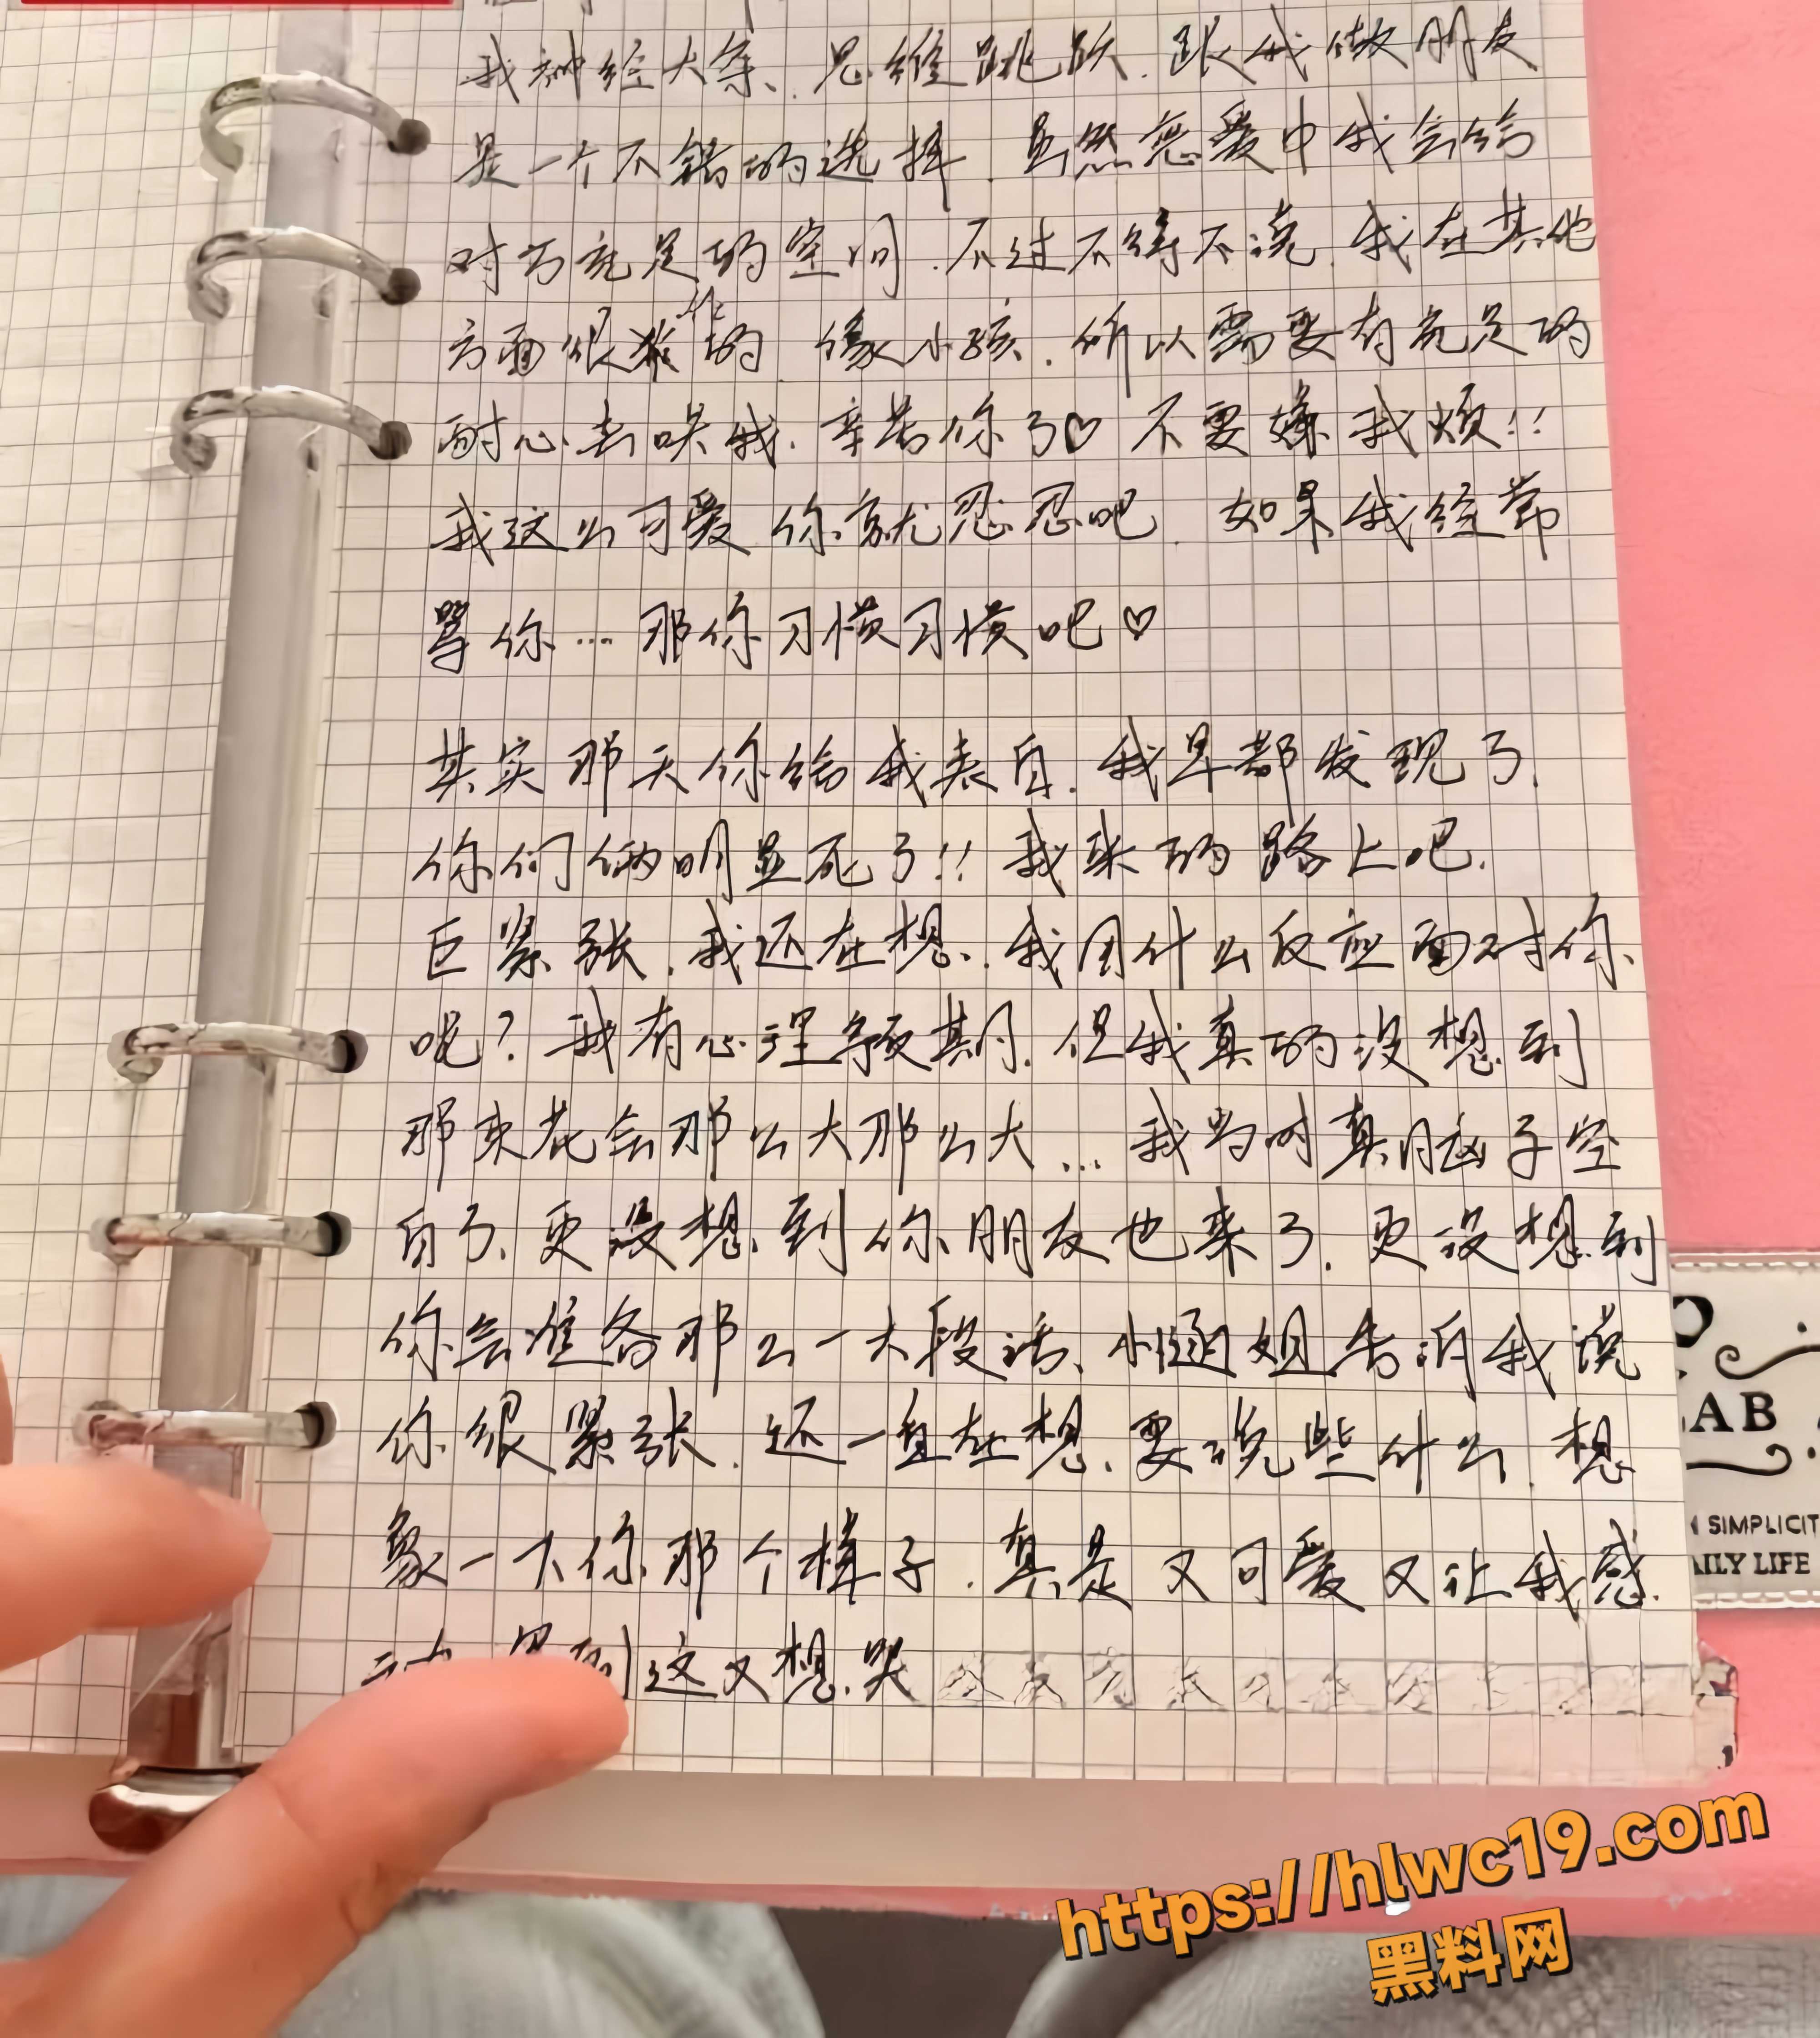 我神经大条、思维跳跃、跟我做朋友
是一个不错的选择、虽然恋爱中我会给
对方充足的空间、不过不得不说、我在其他
方面很难的、像小孩、所以需要有充足的
耐心去哄我、辛苦你了♡ 不要嫌我烦!!
我这么可爱 你就忍忍吧、如果我经常
骂你…那你习惯习惯吧♡
其实那天你给我表白、我早都发现了、
你们俩明显死了!! 我来的路上吧、
巨紧张、我还在想、我用什么反应面对你
呢? 我有心理预期、但我真的没想到
那束花会那么大那么大…我当时真脑子空
白了、更没想到你朋友也来了、更没想到
你会准备那么一大段话、小涵姐告诉我说
你很紧张、还一直在想、要说些什么、想
象一下你那个样子、真是又可爱又让我感
到这又想哭
AB
SIMPLICIT
AILY LIFE
https://hlwc19.com
黑料网